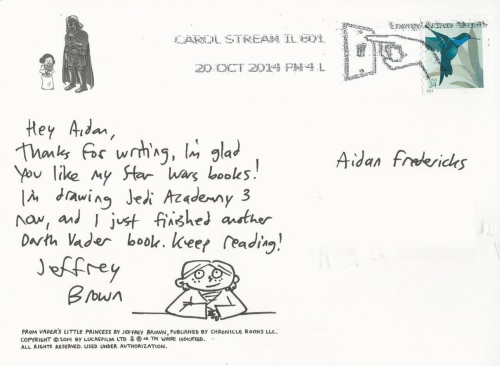 CAROL STREAM IL 601
20 OCT 2014 PM 4 L
Hey Aidan,
Thanks for writing, I'm glad
you like my Star Wars books!
I'm drawing Jedi Academy 3
now, and I just finished another
Darth Vader book. Keep reading!
Jeffrey
Brown
Aidan Fredericks
FROM VADER'S LITTLE PRINCESS BY JEFFREY BROWN, PUBLISHED BY CHRONICLE BOOKS LLC.
COPYRIGHT © 2014 BY LUCASFILM LTD & ® OR TM WHERE INDICATED.
ALL RIGHTS RESERVED. USED UNDER AUTHORIZATION.